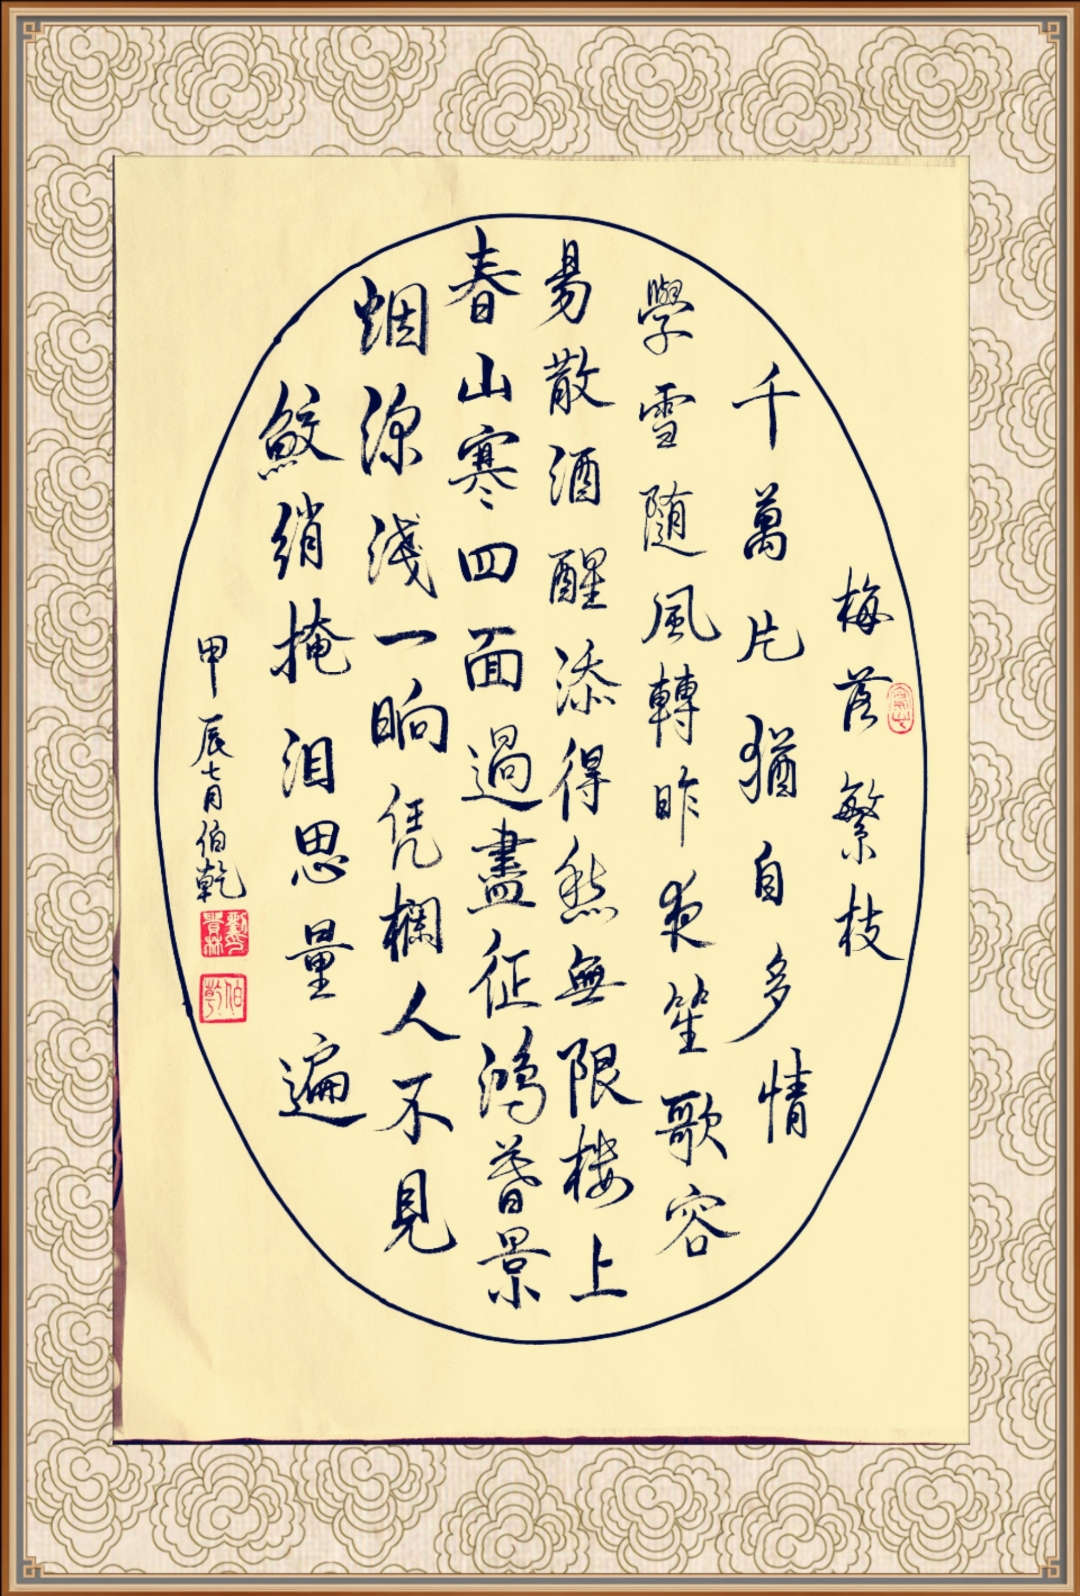 梅落繁枝
千萬片猶自多情
學雪随風轉昨夜笙歌容
易散酒醒添得愁無限楼上
春山寒四面過盡征鴻暮景
烟深淺一晌凭欄人不見
鮫綃掩泪思量遍
甲辰七月伯乾
伯乾